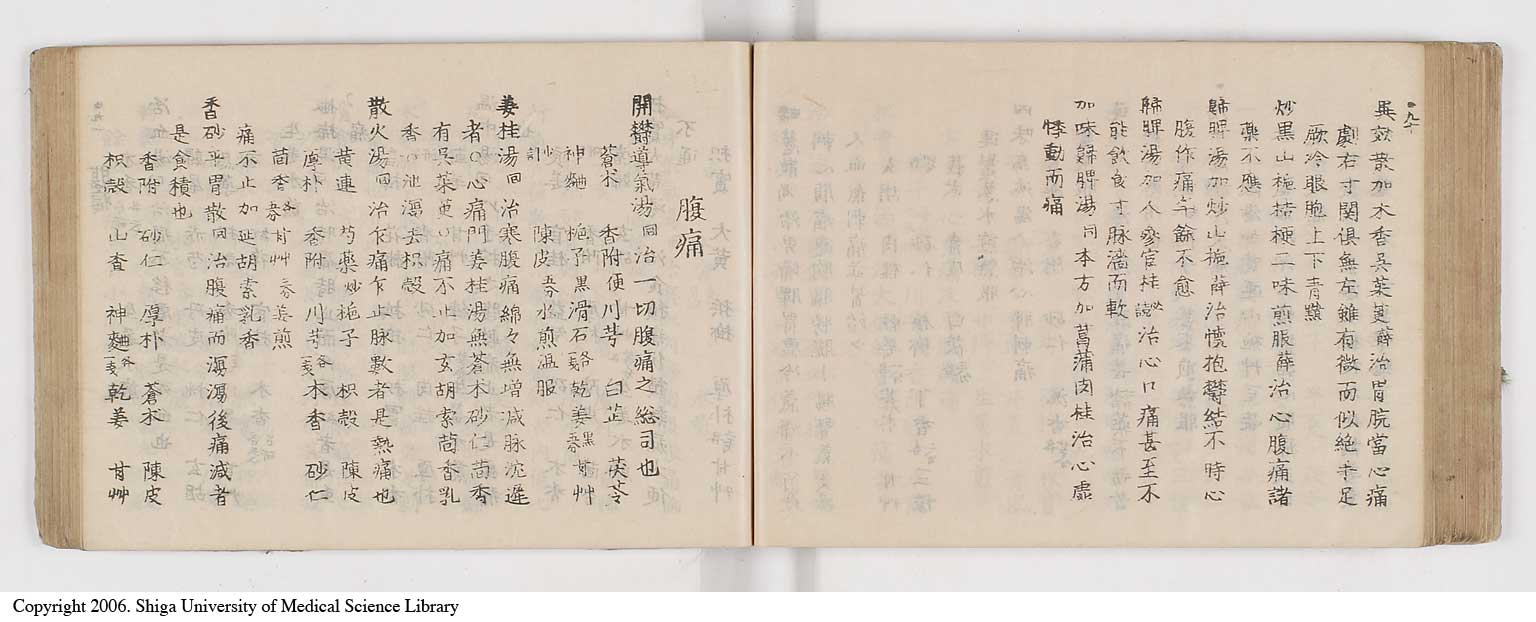 呉茱散加木香呉茱萸薛治胃脘當心痛
劇右寸関俱無左雖有微而似絶手足
厥冷眼胞上下青黯
炒黒山梔桔梗二味煎服薛治心腹痛諸
藥不應
歸脾湯加炒山梔薛治懐抱欝結不時心
腹作痛年餘不愈
歸脾湯加人參官桂治心口痛甚至不
能飲食寸脉濇而軟
加味歸脾湯同本方加菖蒲肉桂治心虚
悸動而痛
腹痛
開欝導氣湯回治一切腹痛之総司也
蒼朮 香附便 川芎 白芷 茯苓
神麯 梔子黒 滑石各一戔 乾姜黒五分 甘艸
炒 陳皮五分 水煎温服
姜桂湯回治寒腹痛綿々無増減脉沈遲
者○心痛門姜桂湯無蒼木砂仁茴香
有呉茱萸○痛不止加玄胡索茴香乳
香○泄瀉去枳殻
散火湯回治乍痛乍止脉數者是熱痛也
黄連 芍藥炒 梔子 枳殻 陳皮
厚朴 香附 川芎各一戔 木香 砂仁
茴香各五分 甘艸三分 姜煎
痛不止加延胡索乳香
香砂平胃散回治腹痛而瀉瀉後痛減者
是食積也
香附 砂仁 厚朴 蒼朮 陳皮
枳殻 山査 神麯各一戔 乾姜 甘艸